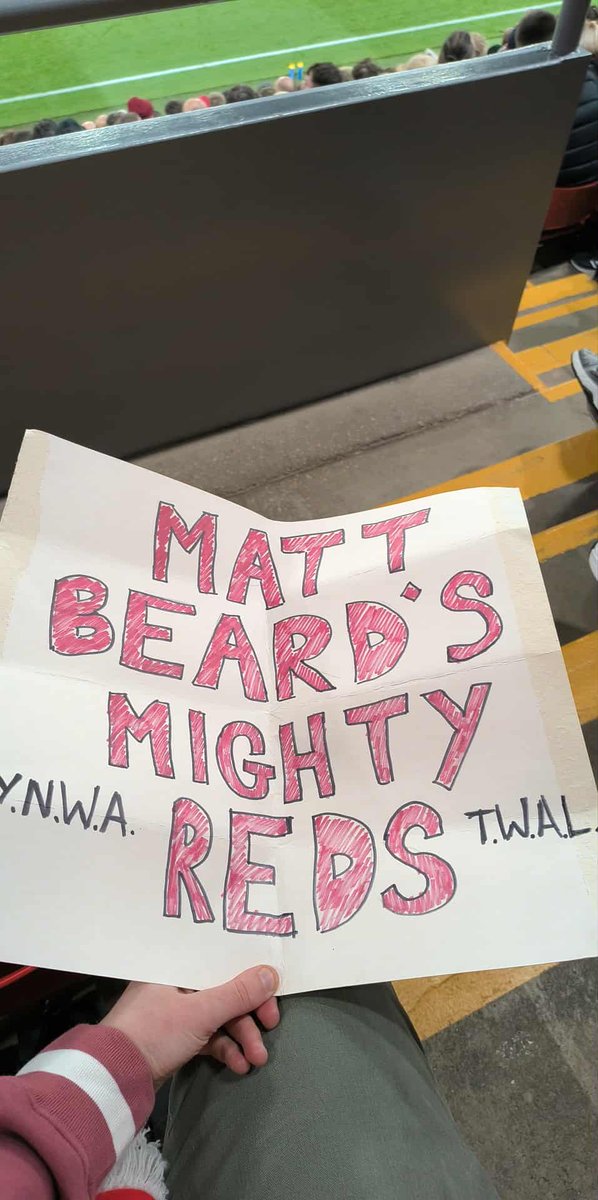 MATT
BEARD'S
MIGHTY
Y.N.W.A. REDS T.W.A.L.